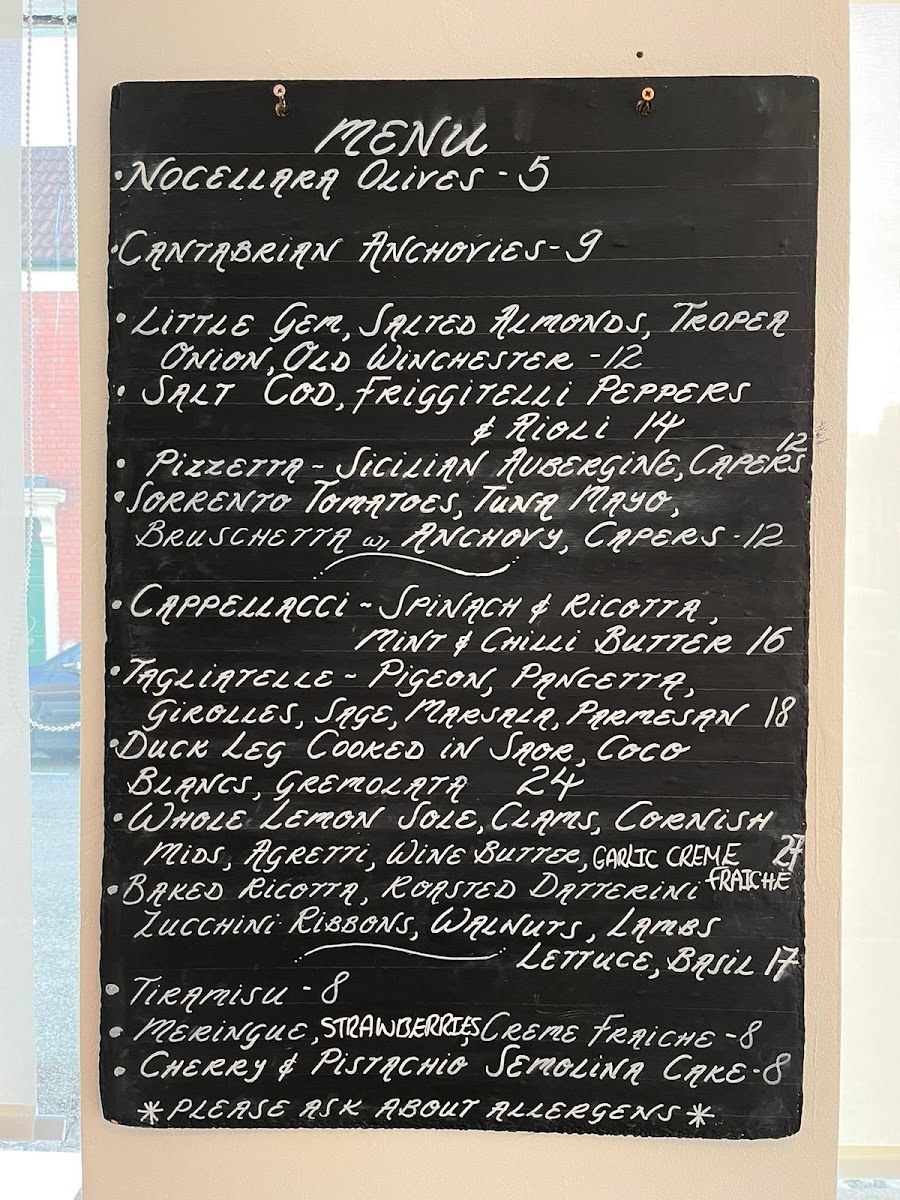 MENU
• NOCELLARA OLIVES - 5
• CANTABRIAN ANCHOVIES - 9
• LITTLE GEM, SALTED ALMONDS, TROPEA
ONION, OLD WINCHESTER - 12
• SALT COD, FRIGGITELLI PEPPERS
& AIOLI 14
• PIZZETTA - SICILIAN AUBERGINE, CAPERS 12
• SORRENTO TOMATOES, TUNA MAYO,
BRUSCHETTA w, ANCHOVY, CAPERS - 12
• CAPPELLACCI - SPINACH & RICOTTA,
MINT & CHILLI BUTTER 16
• TAGLIATELLE - PIGEON, PANCETTA,
GIROLLES, SAGE, MARSALA, PARMESAN 18
• DUCK LEG COOKED IN SAOR, COCO
BLANCS, GREMOLATA 24
• WHOLE LEMON SOLE, CLAMS, CORNISH
MIDS, AGRETTI, WINE BUTTER, GARLIC CREME FRAICHE 27
• BAKED RICOTTA, ROASTED DATTERINI
ZUCCHINI RIBBONS, WALNUTS, LAMBS
LETTUCE, BASIL 17
• TIRAMISU - 8
• MERINGUE, STRAWBERRIES, CREME FRAICHE - 8
• CHERRY & PISTACHIO SEMOLINA CAKE - 8
* PLEASE ASK ABOUT ALLERGENS *